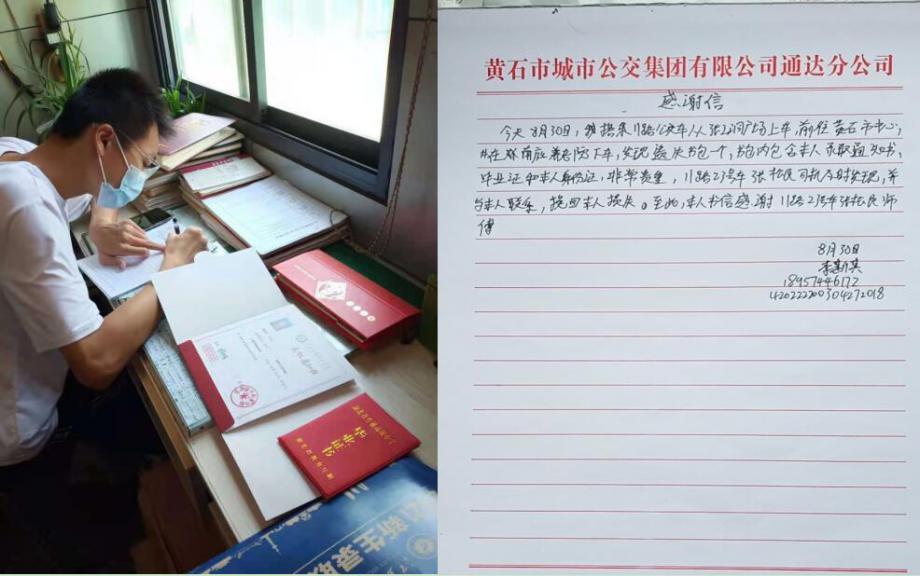 毕业证书
新生录取
黄石市城市公交集团有限公司通达分公司
感谢信
今天8月30日,搭乘11路公交车从张之洞广场上车,前往黄石市中心,
下车,发现遗失书包一个,书包内包含本人录取通知书,
毕业证和本人身份证,非常贵重,11路23号车张松民司机及时发现,并
与本人联系,挽回本人损失。至此,本人书信感谢11路23号车张松民师
傅
8月30日
18957446172
420222200304272018